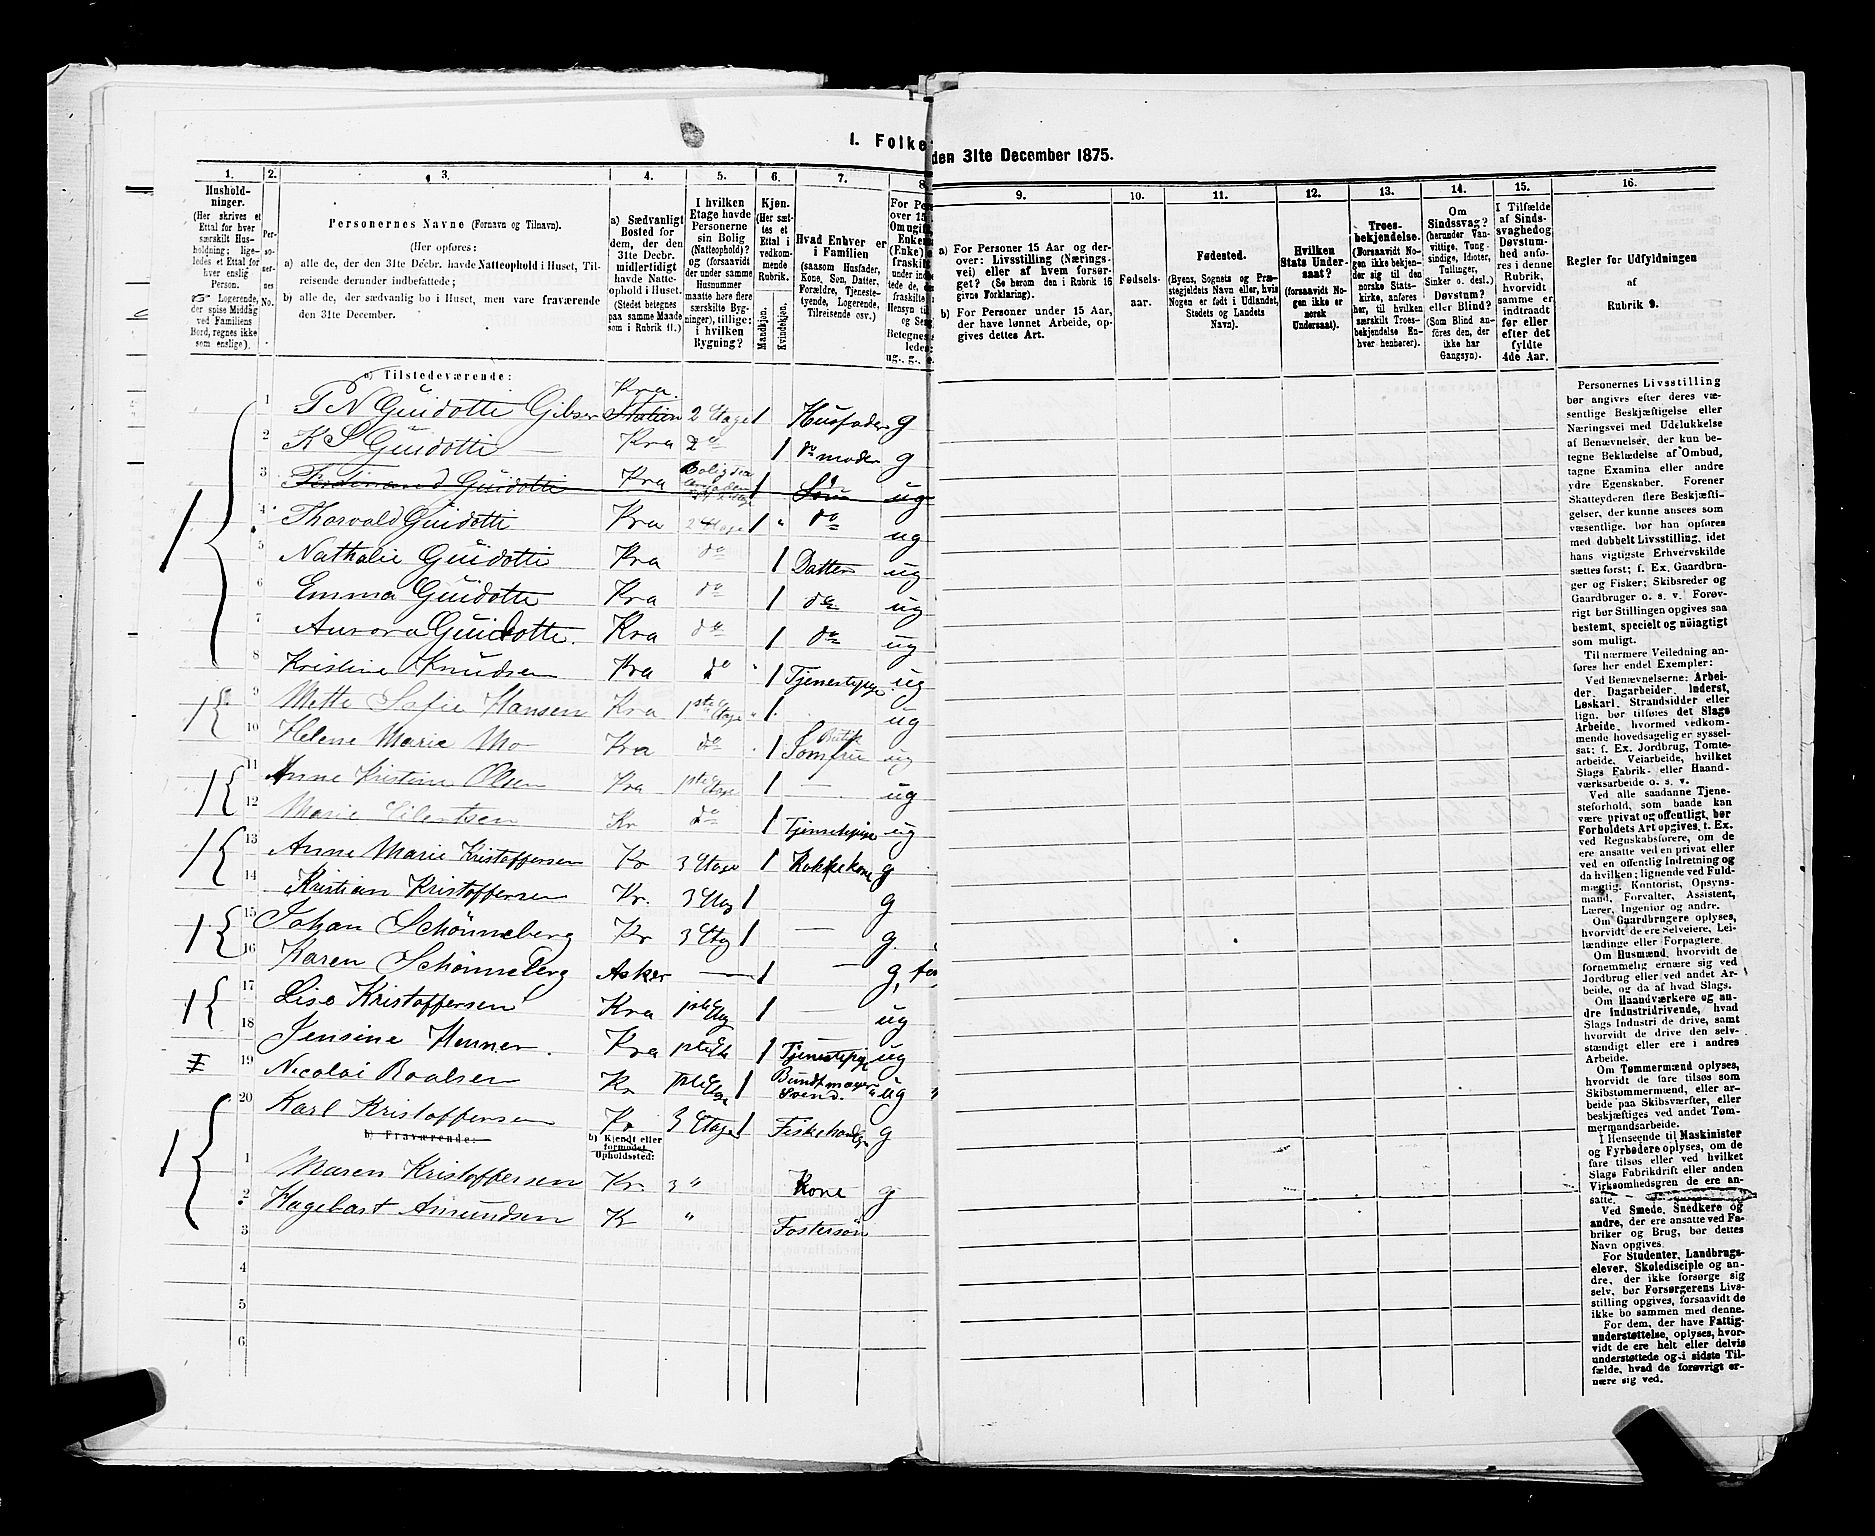 1. Folke
den 31te December 1875.
1.
2.
3.
4.
5.
6.
7.
8
Hushold-
ninger.
(Her skrives et
Ettal for hver
særskilt Hus-
holdning; lige-
ledes et Ettal for
hver enslig
Person.
☞ Logerende,
der spise Middag
ved Familiens
Bord, regnes ikke
som enslige).
Per-
so-
ner-
nes
No.
Personernes Navne (Fornavn og Tilnavn).
(Her opføres:
a) alle de, der den 31te Decbr. havde Natteophold i Huset, Til-
reisende derunder indbefattede;
b) alle de, der sædvanlig bo i Huset, men vare fraværende
den 31te December.
a) Sædvanligt
Bosted for
dem, der den
31te Decbr.
midlertidigt
havde Natte-
ophold i Huset.
(Stedet betegnes
paa samme Maade
som i Rubrik 11.)
I hvilken
Etage havde
Personerne
sin Bolig
(Natteophold)?
og (forsaavidt
der under samme
Husnummer
maatte høre flere
særskilte Byg-
ninger), tillige:
i hvilken
Bygning?
Kjøn.
(Her sæt-
tes et
Ettal i
vedkom-
mende
Rubrik.)
Mandkjøn.
Kvindekjøn.
Hvad Enhver er
i Familien
(saasom Husfader,
Kone, Søn, Datter,
Forældre, Tjeneste-
tyende, Logerende,
Tilreisende osv.)
For Pe
over 15
Om ugift
Enken
(Enke)
fraskilt
under ind
tede de,
fraskilte
Hensyn til
og Seng
Betegnes
ledes:
ug., g., e
a) Tilstedeværende:
1 P N Guidotti Gibser Kra. Italien 2 Etage 1 Husfader g
2 K S Guidotti Kra 2 do 1 do moder g
3 Ferdinand Guidotti Kra 1 Søn ug
4 Thorvald Guidotti Kra 2 Etage 1 " do ug
5 Nathalie Guidotti Kra do 1 Datter ug
6 Emma Guidotti Kra do 1 do ug
7 Aurora Guidotti. Kra do 1 do ug
8 Kristine Knudsen Kra do 1 Tjenestepige ug
9 Mette Sofie Hansen Kra 1ste Etage 1 ug
10 Helene Marie Mo Kra do 1 Butik Jomfru ug
11 Anne Kristine Olsen Kra 1ste Etage 1 — ug
12 Marie Eilertsen Kr do 1 Tjenestepige ug
13 Anne Marie Kristoffersen Kr 3 Etage 1 Kokkekone g
14 Kristian Kristoffersen Kr. 3 Etag 1 g
15 Johan Schønneberg Kr 3 Etag 1 — g.
16 Karen Schønneberg Asker — 1 — g,
17 Lise Kristoffersen Kra 1ste Etag 1 — ug
18 Jensine Kra 1ste Et 1 Tjenestepige ug
19 Nicolai Roalsen Kr 1ste Etage 1 Bundtmager Svend. ug
20 Karl Kristoffersen Kr 3 Etage 1 Fiskehandler g
b) Fraværende:
b) Kjendt eller
formodet
Opholdssted:
1 Maren Kristoffersen Kr. 3 " Kone g
2 Hagebart Amundsen K " Fostersøn
3
4
5
6
9.
10.
11.
12.
13.
14.
15.
16.
a) For Personer 15 Aar og der-
over: Livsstilling (Nærings-
vei) eller af hvem forsør-
get? (Se herom den i Rubrik 16
givne Forklaring).
b) For Personer under 15 Aar,
der have lønnet Arbeide, op-
gives dettes Art.
Fødsels-
aar.
Fødested.
(Byens, Sognets og Præ-
stegjeldets Navn eller, hvis
Nogen er født i Udlandet,
Stedets og Landets
Navn).
Hvilken
Stats Under-
saat?
(forsaavidt No-
gen ikke er
norsk
Undersaat).
Troes-
bekjendelse.
(Forsaavidt No-
gen ikke bekjen-
der sig til den
norske Stats-
kirke, anføres
her, til hvilken
særskilt Troes-
bekjendelse En-
hver henhører).
Om
Sindssvag?
(herunder Van-
vittige, Tung-
sindige, Idioter,
Tullinger,
Sinker o. desl.)
Døvstum?
eller Blind?
(Som Blind an-
føres den, der
ikke har
Gangsyn).
I Tilfælde
af Sinds-
svaghed og
Døvstum-
hed anfø-
res i denne
Rubrik,
hvorvidt
samme er
indtraadt
før eller
efter det
fyldte
4de Aar.
Regler for Udfyldningen
af
Rubrik 9.
Personernes Livsstilling
bør angives efter deres væ-
sentlige Beskjæftigelse eller
Næringsvei med Udelukkelse
af Benævnelser, der kun be-
tegne Beklædelse af Ombud,
tagne Examina eller andre
ydre Egenskaber. Forener
Skatteyderen flere Beskjæfti-
gelser, der kunne ansees som
væsentlige, bør han opføres
med dobbelt Livsstilling, idet
hans vigtigste Erhvervskilde
sættes først; f. Ex. Gaardbru-
ger og Fisker; Skibsreder og
Gaardbruger o. s. v. Forøv-
rigt bør Stillingen opgives saa
bestemt, specielt og nøiagtigt
som muligt.
Til nærmere Veiledning an-
føres her endel Exempler:
Ved Benævnelserne: Arbei-
der, Dagarbeider, Inderst,
Løskarl, Strandsidder eller
lign. bør tilføies det Slags
Arbeide, hvormed vedkom-
mende hovedsagelig er syssel-
sat; f. Ex. Jordbrug, Tomte-
arbeide, Veiarbeide, hvilket
Slags Fabrik- eller Haand-
værksarbeide o. s. v.
Ved alle saadanne Tjene-
steforhold, som baade kan
være privat og offentligt, bør
Forholdets Art opgives, t. Ex.
ved Regnskabsførere, om de
ere ansatte ved en privat eller
ved en offentlig Indretning og
da hvilken; lignende ved Fuld-
mægtig, Kontorist, Opsyns-
mand, Forvalter, Assistent,
Lærer, Ingeniør og andre.
Om Gaardbrugere oplyses,
hvorvidt de ere Selveiere, Lei-
lændinge eller Forpagtere.
Om Husmænd, hvorvidt de
fornemmelig ernære sig ved
Jordbrug eller ved andet Ar-
beide, og da af hvad Slags.
Om Haandværkere og an-
dre Industridrivende, hvad
Slags Industri de drive, samt
hvorvidt de drive den selv-
stændigt eller ere i andres
Arbeide.
Om Tømmermænd oplyses,
hvorvidt de fare tilsøs som
Skibstømmermænd, eller ar-
beide paa Skibsværfter, eller
beskjæftiges ved andet Tøm-
mermandsarbeide.
I Henseende til Maskinister
og Fyrbødere oplyses, om de
fare tilsøs eller ved hvilket
Slags Fabrikdrift eller anden
Virksomhedsgren de ere an-
satte.
Ved Smede, Snedkere og
andre, der ere ansatte ved Fa-
briker og Brug, bør dettes
Navn opgives.
For Studenter, Landbrugs-
elever, Skoledisciple og an-
dre, der ikke forsørge sig
selv, bør Forsørgerens Livs-
stilling opgives, forsaavidt de
ikke bo sammen med denne.
For dem, der have Fattig-
understøttelse, oplyses, hvor-
vidt de ere helt eller delvis
understøttede og i sidste Til-
fælde, hvad de forøvrigt er-
nære sig ved.